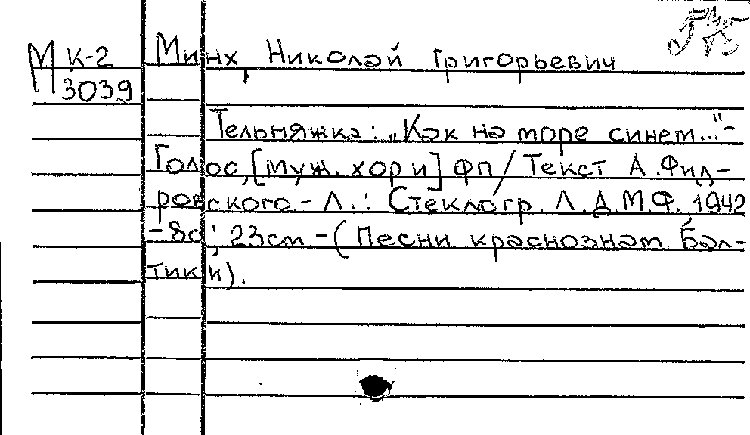 М К-2 Минх, Николай Григорьевич
3039
Тельняжка: „Как на море синем..."-
Голос, [муж. хор и] фп / Текст А. Фид-
ровского - Л.: Стеклогр. Л.Д.М.Ф. 1942
-8с; 23см - (Песни краснознам Бал-
тики).